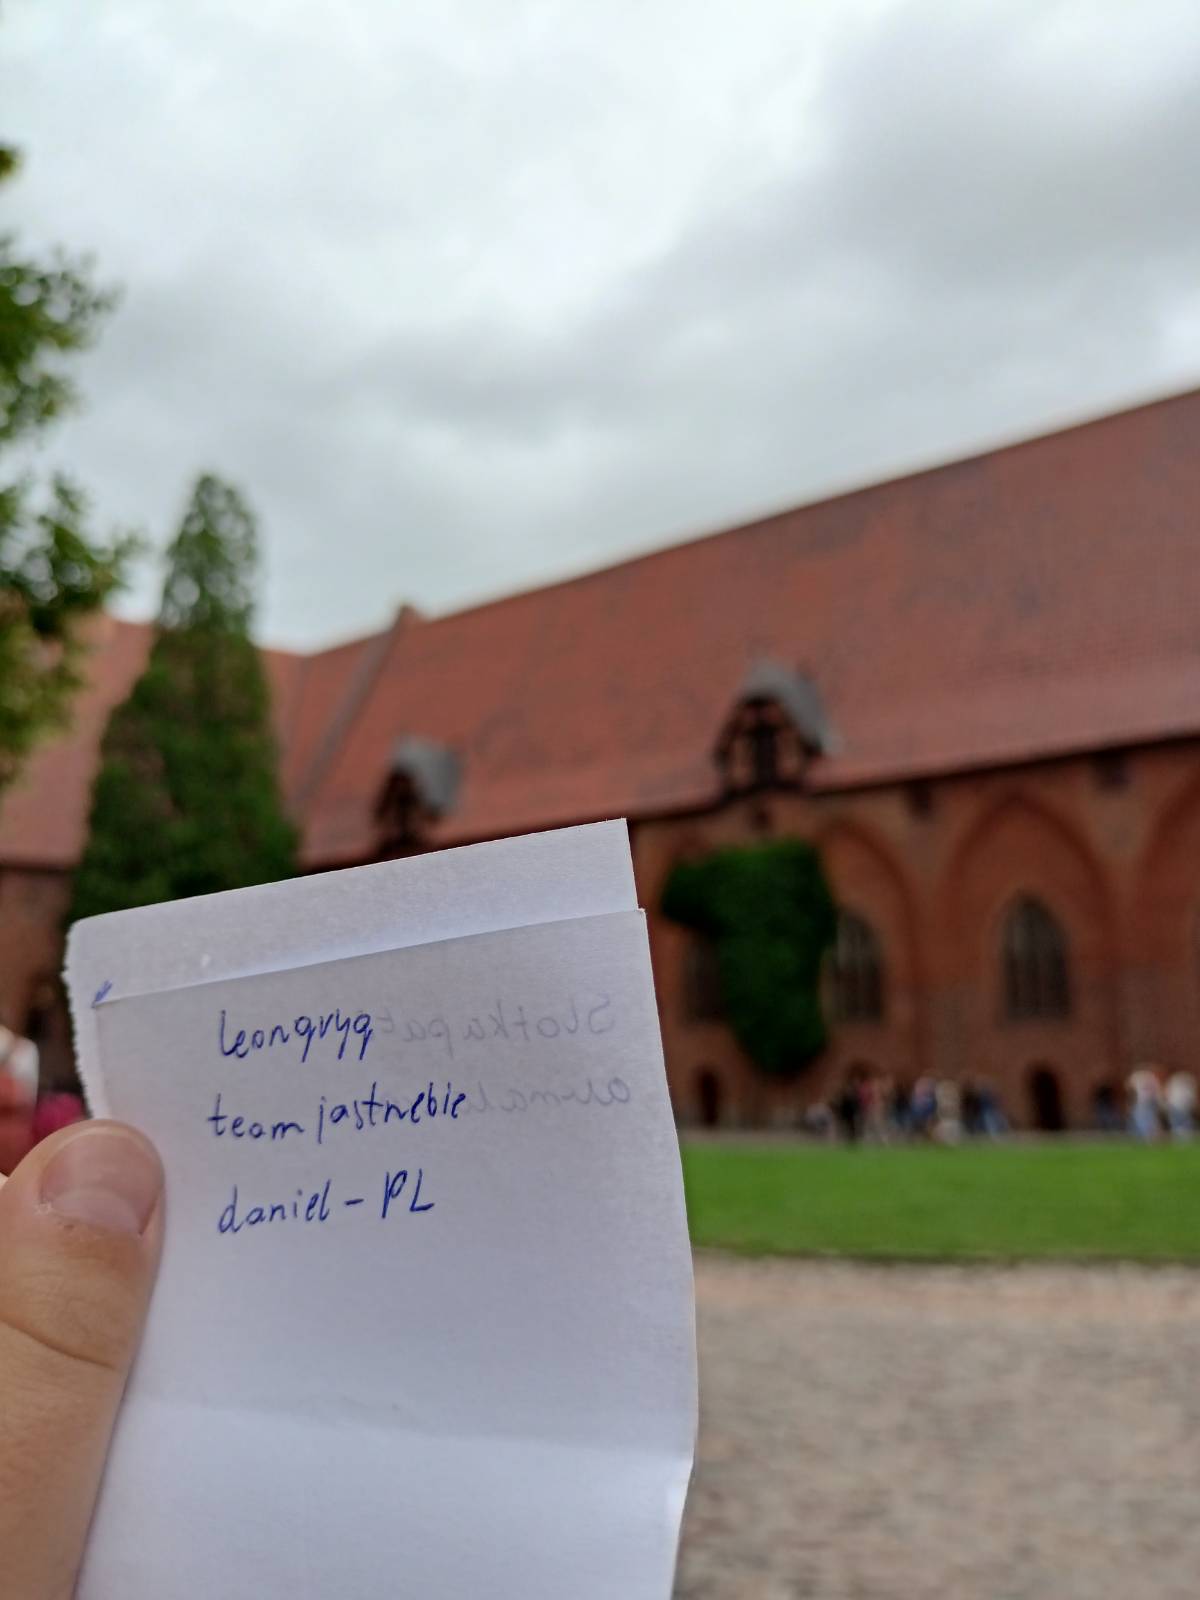 leongryg
team jastrzebie
daniel - PL